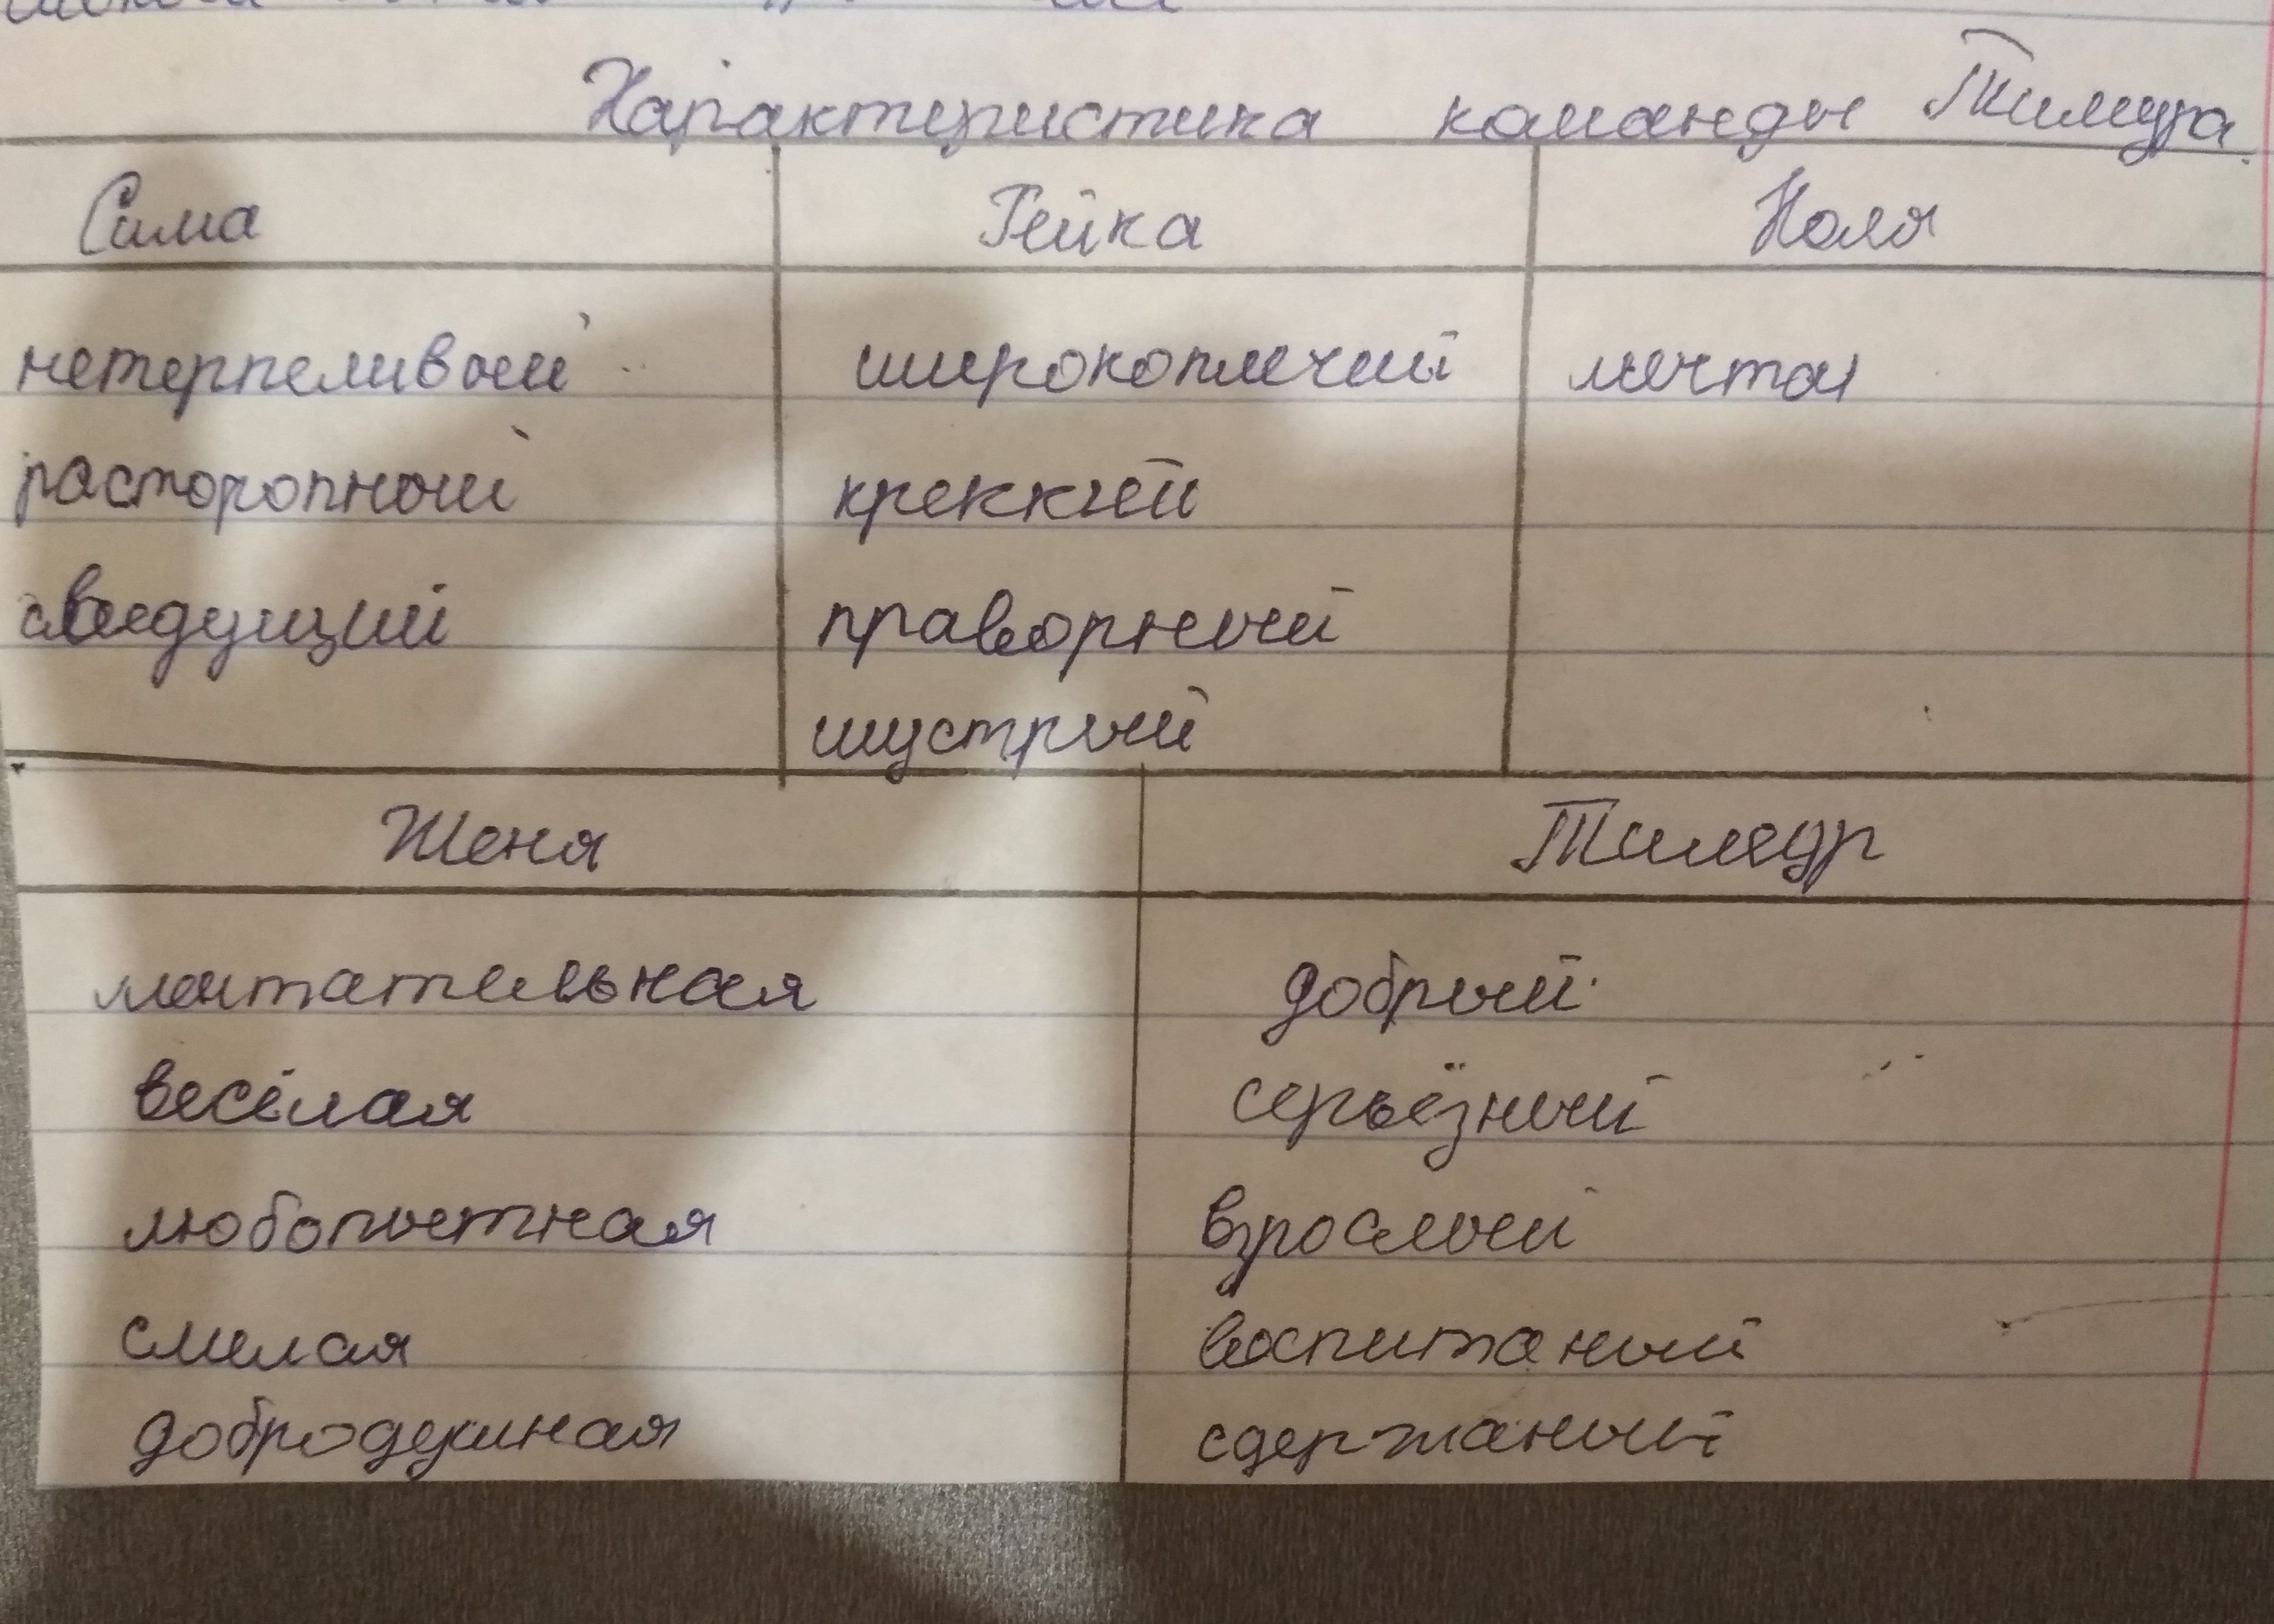 Характеристика команды Тимура
Сима Гейка Коля
нетерпеливый широкоплечий мечта
расторопный креккий
сведущий праворный
шустрый
Женя Тимур
мечтательная добрый
весёлая серьёзный
любопытная взрослый
смелая воспитаный
добродушная сдержаный